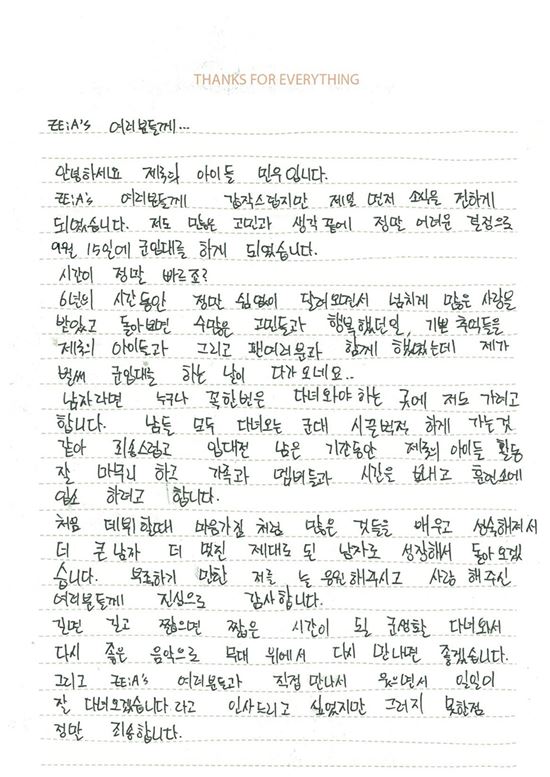 THANKS FOR EVERYTHING
ZE:A's 여러분들께...
안녕하세요 제국의 아이들 민우입니다.
ZE:A's 여러분들께 갑작스럽지만 제일 먼저 소식을 전하게
되었습니다. 저도 많은 고민과 생각 끝에 정말 어려운 결정으로
9월 15일에 군입대를 하게 되었습니다.
시간이 정말 빠르죠?
6년의 시간동안 정말 쉼없이 달려오면서 넘치게 많은 사랑을
받았고 돌아보면 수많은 고민들과 행복했던일, 기쁜 추억들을
제국의 아이들과 그리고 팬여러분과 함께 했었는데 제가
벌써 군입대를 하는 날이 다가오네요..
남자라면 누구나 꼭한번은 다녀와야 하는 곳에 저도 가려고
합니다. 남들 모두 다녀오는 군대 시끌벅적 하게 가는것
같아 죄송스럽고 입대전 남은 기간동안 제국의 아이들 활동
잘 마무리 하고 가족과 멤버들과 시간을 보내고 훈련소에
입소 하려고 합니다.
처음 데뷔할때 마음가짐 처럼 많은 것들을 배우고 성숙해져서
더 큰남자 더 멋진 제대로 된 남자로 성장해서 돌아오겠
습니다. 부족하기 만한 저를 늘 응원해주시고 사랑 해주신
여러분들께 진심으로 감사합니다.
길면 길고 짧으면 짧은 시간이 될 군생활 다녀와서
다시 좋은 음악으로 무대 위에서 다시 만나면 좋겠습니다.
그리고 ZE:A's 여러분들과 직접 만나서 웃으면서 일일이
잘 다녀오겠습니다.라고 인사드리고 싶었지만 그러지 못한점
정말 죄송합니다.